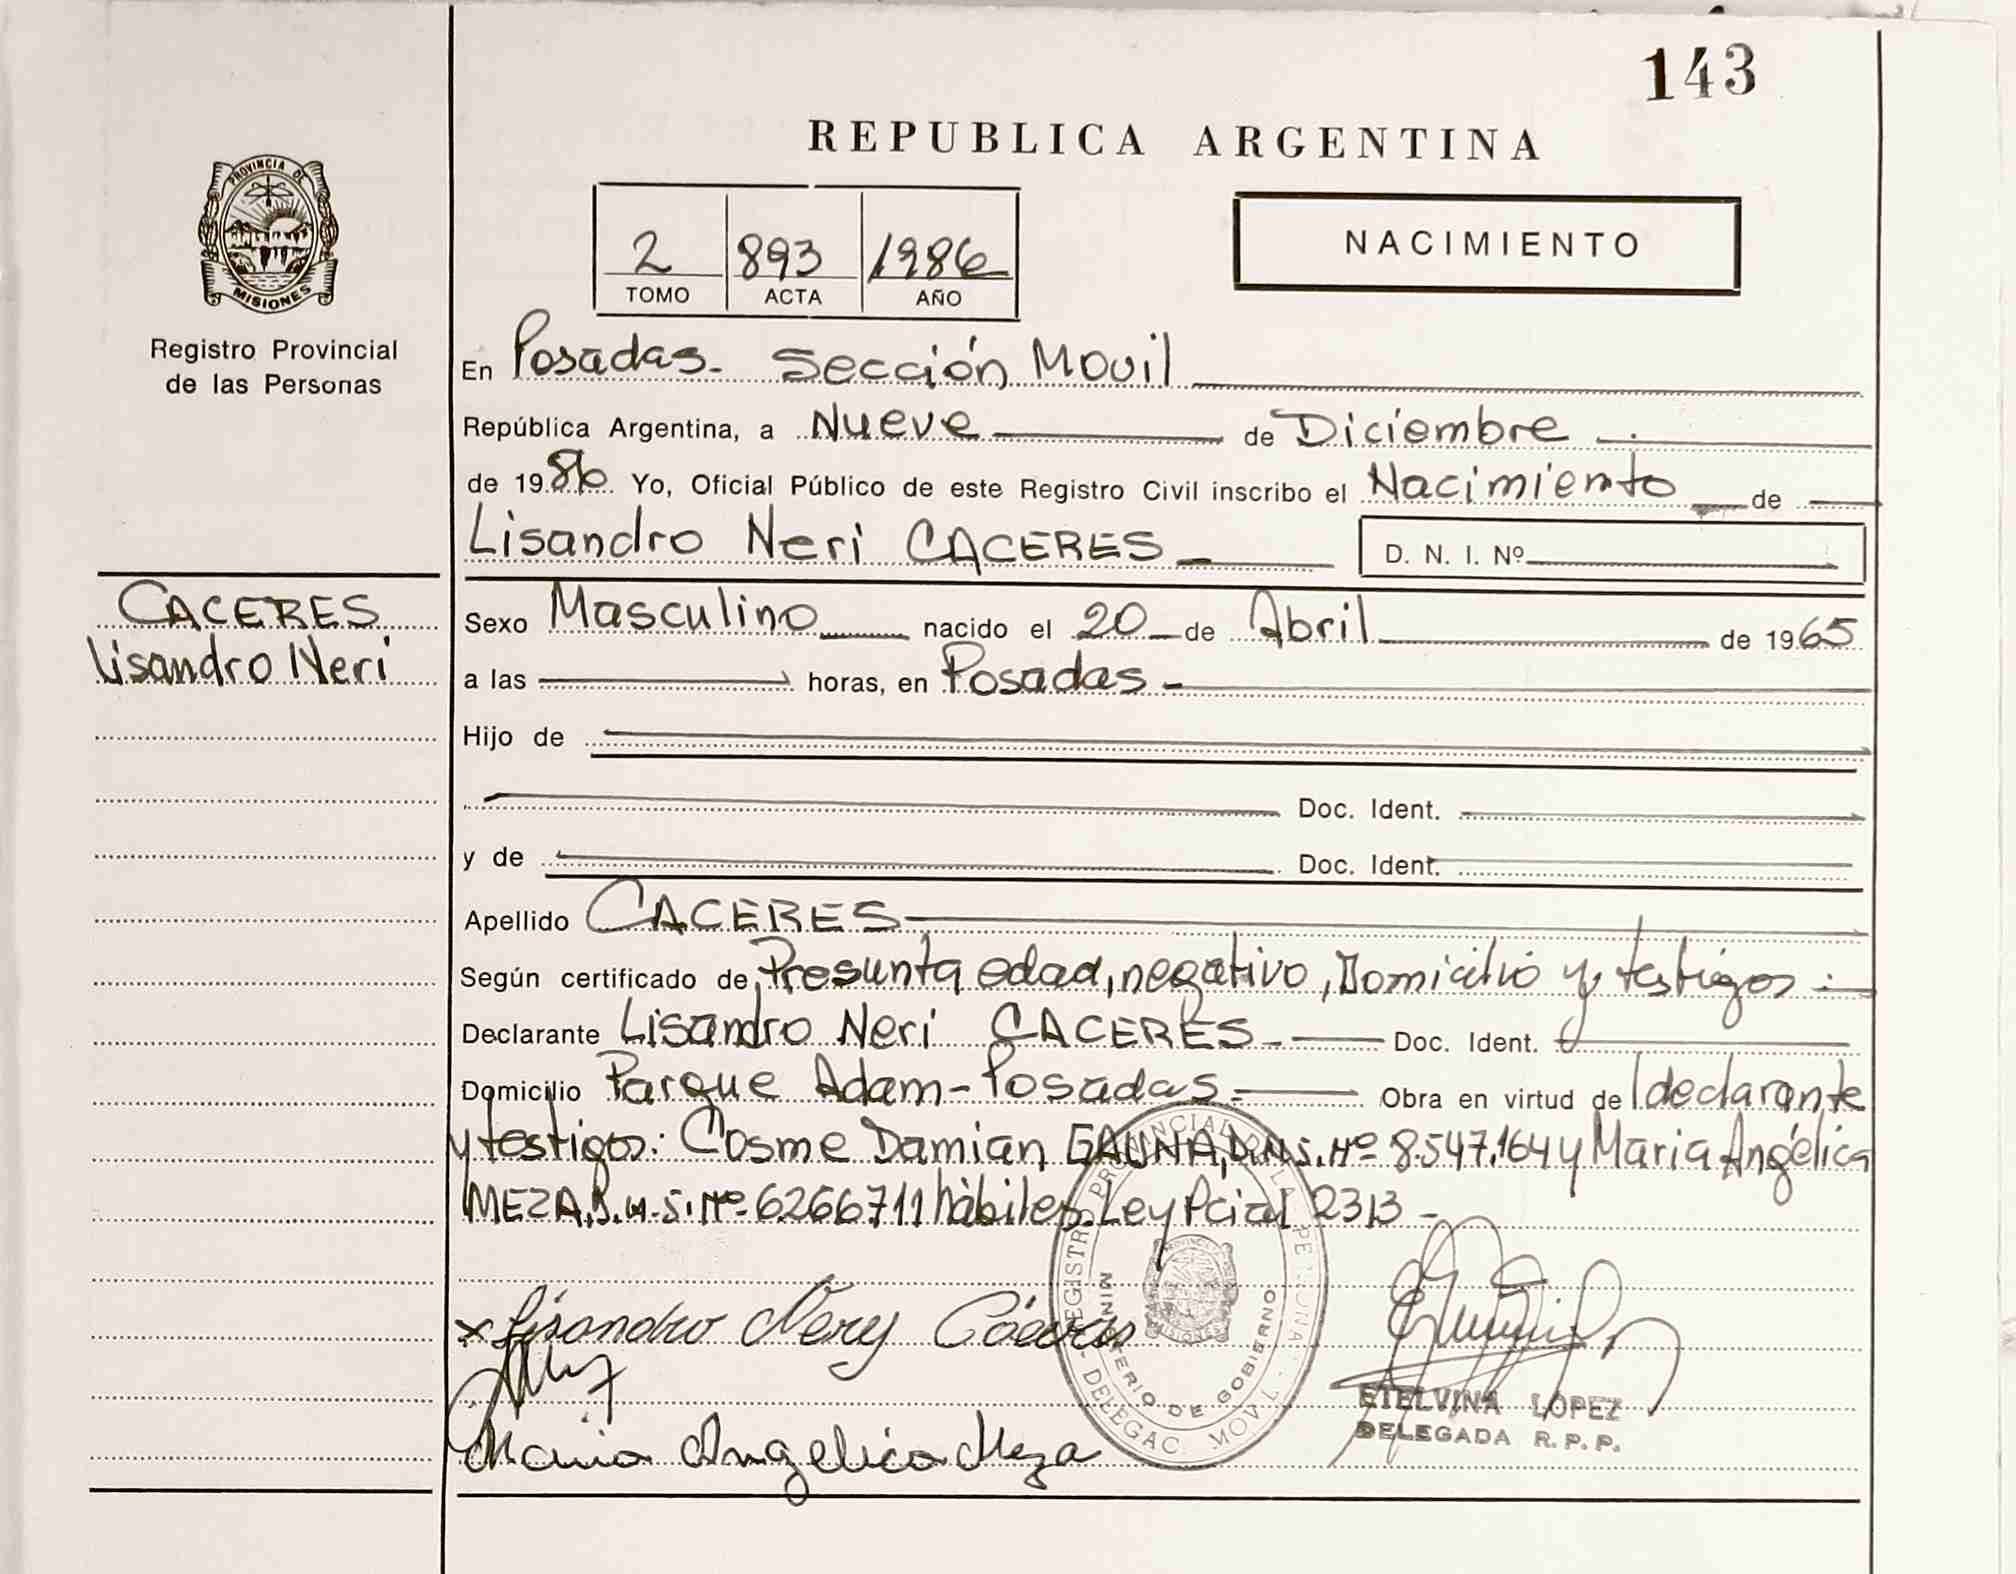 143
REPUBLICA ARGENTINA
PROVINCIA DE
MISIONES
Registro Provincial
de las Personas
2 893 1986
TOMO ACTA AÑO
NACIMIENTO
En Posadas - Sección Movil
República Argentina, a Nueve de Diciembre
de 1986 Yo, Oficial Público de este Registro Civil inscribo el Nacimiento de
Lisandro Neri CACERES
D. N. I. Nº
CACERES
Lisandro Neri
Sexo Masculino nacido el 20 de Abril de 1965
a las horas, en Posadas -
Hijo de
Doc. Ident.
y de Doc. Ident.
Apellido CACERES
Según certificado de Presunta edad, negativo, Domicilio y testigos :
Declarante Lisandro Neri CACERES - Doc. Ident.
Domicilio Parque Adam - Posadas - Obra en virtud de l declarante
y testigos: Cosme Damian GAUNA, D.N.I. Nº 8.547.164 y Maria Angélica
MEZA, Nº 6266711 hàbiles. Ley Pcial 2313 -
x Lisandro Nery Cáceres
Maria Angelica Meza
REGISTRO PROVINCIAL DE LAS PERSONAS
MINISTERIO DE GOBIERNO
DELEGAC. MOVIL
MISIONES
ETELVINA LOPEZ
DELEGADA R. P. P.